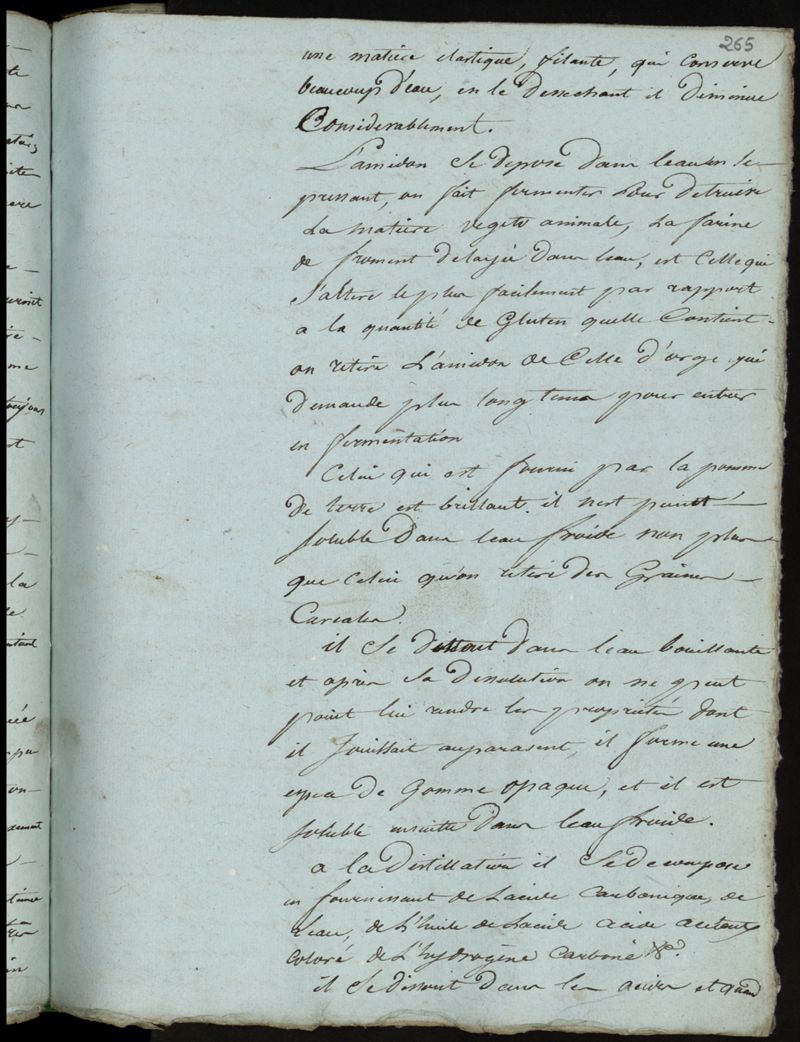 265
une matiere elastique, filante, qui conserve
beaucoup d'eau, en le dessechant il diminue
Considerablement.
L'amidon se depose dans leau en le
pressant, on fait fermenter pour detruire
La matiere vegeto animale, La farine
de froment delayée dans leau, est Celle qui
s'altere le plus facilement par rapport
a la quantité de Gluten quelle Contient
on retire L'amidon de Celle d'orge qui
demande plus longtems pour entrer
en fermentation
Celui qui est fourni par la pomme
de terre est brillant. il nest point
soluble dans leau froide non plus
que Celui qu'on retire des Graines
Cereales.
il se dissout dans leau bouillante
et après sa dissolution on ne peut
point lui rendre les proprietés dont
il Jouissait auparavent, il forme une
espece de Gomme opaque, et il est
soluble ensuitte dans leau froide.
a la Distillation il se decompose
en fournissant de Lacide Carbonique, de
Leau, de L'huile de Lacide acide aceteux
Coloré de L'hydrogène Carboné &ca.
il se dissout dans les acides et quand